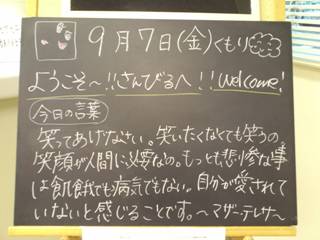 9月7日(金)くもり
ようこそ〜!!さんびるへ!!Welcome!
今日の言葉
笑ってあげなさい。笑いたくなくても笑うの
笑顔が人間に必要なの。もっとも悲惨な事
は飢餓でも病気でもない。自分が愛されて
いないと感じることです。〜マザーテレサ〜